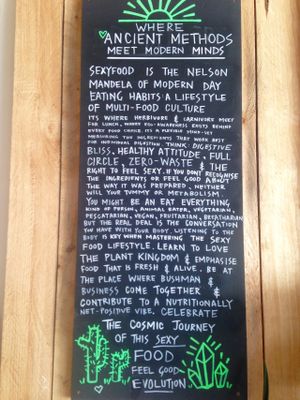 WHERE
ANCIENT METHODS
MEET MODERN MINDS
SEXYFOOD IS THE NELSON
MANDELA OF MODERN DAY
EATING HABITS A LIFESTYLE
OF MULTI-FOOD CULTURE
IT'S WHERE HERBIVORE & CARNIVORE MEET
FOR LUNCH, WHERE EGO-AWARENESS EXISTS BEHIND
EVERY FOOD CHOICE. IT'S A FLEXIBLE MIND-SET
MEASURING THE INGREDIENTS THAT WORK BEST
FOR INDIVIDUAL DIGESTION. THINK: DIGESTIVE
BLISS, HEALTHY ATTITUDE, FULL
CIRCLE, ZERO-WASTE & THE
RIGHT TO FEEL SEXY. IF YOU DON'T RECOGNISE
THE INGREDIENTS OR FEEL GOOD ABOUT
THE WAY IT WAS PREPARED, NEITHER
WILL YOUR TUMMY OR METABOLISM.
YOU MIGHT BE AN EAT EVERYTHING
KIND OF PERSON, ANIMAL EATER, VEGETARIAN,
PESCATARIAN, VEGAN, FRUITARIAN, BREATHARIAN
BUT THE REAL DEAL IS THE CONVERSATION
YOU HAVE WITH YOUR BODY. LISTENING TO THE
BODY IS KEY WHEN MASTERING THE SEXY
FOOD LIFESTYLE. LEARN TO LOVE
THE PLANT KINGDOM & EMPHASISE
FOOD THAT IS FRESH & ALIVE. BE AT
THE PLACE WHERE BUSHMAN &
BUSINESS COME TOGETHER &
CONTRIBUTE TO A NUTRITIONALLY
NET-POSITIVE VIBE. CELEBRATE
THE COSMIC JOURNEY
OF THIS SEXY
FOOD
FEEL GOOD
EVOLUTION